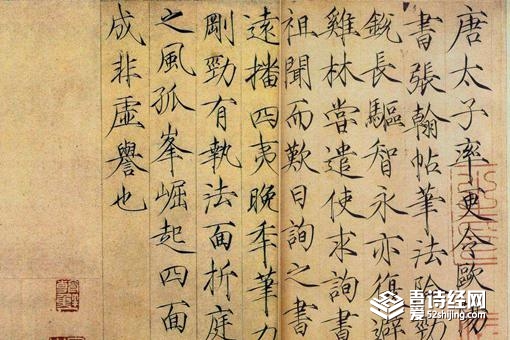 唐太子率更令歐陽
書張翰帖筆法險勁
銳長驅智永亦復避
雞林嘗遣使求詢書
祖聞而歎曰詢之書
遠播四夷晚年筆力
剛勁有執法面折庭
之風孤峯崛起四面
成非虛譽也
吾诗经网
52shijing.com